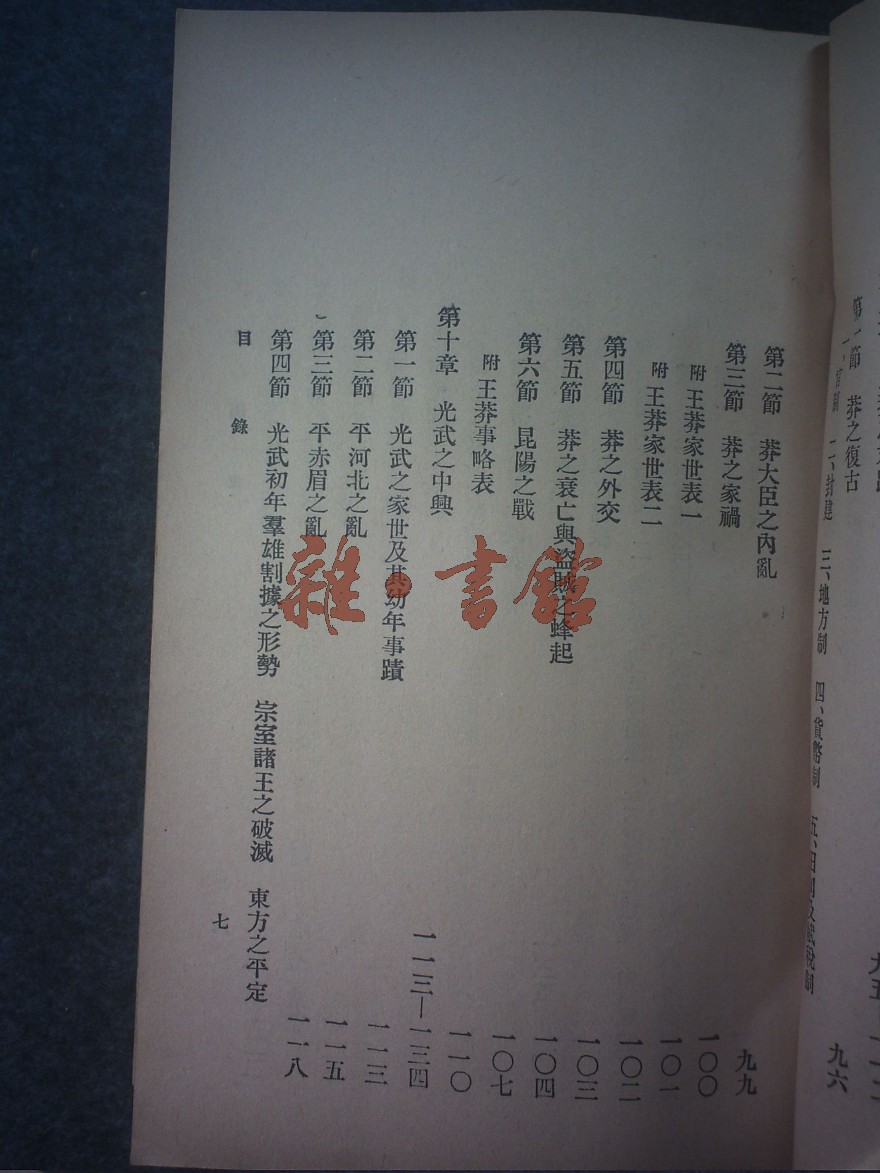 第一節　莽之復古　九六
二、封建　三、地方制　四、貨幣制
第二節　莽大臣之內亂　九九
第三節　莽之家禍　一〇〇
附　王莽家世表一　一〇一
附　王莽家世表二　一〇二
第四節　莽之外交　一〇三
第五節　莽之衰亡與盜賊之蜂起　一〇四
第六節　昆陽之戰　一〇七
附　王莽事略表　一一〇
第十章　光武之中興　一一三—一三四
第一節　光武之家世及其幼年事蹟　一一三
第二節　平河北之亂　一一五
第三節　平赤眉之亂　一一八
第四節　光武初年羣雄割據之形勢　宗室諸王之破滅　東方之平定
目　錄　七
雜·書館